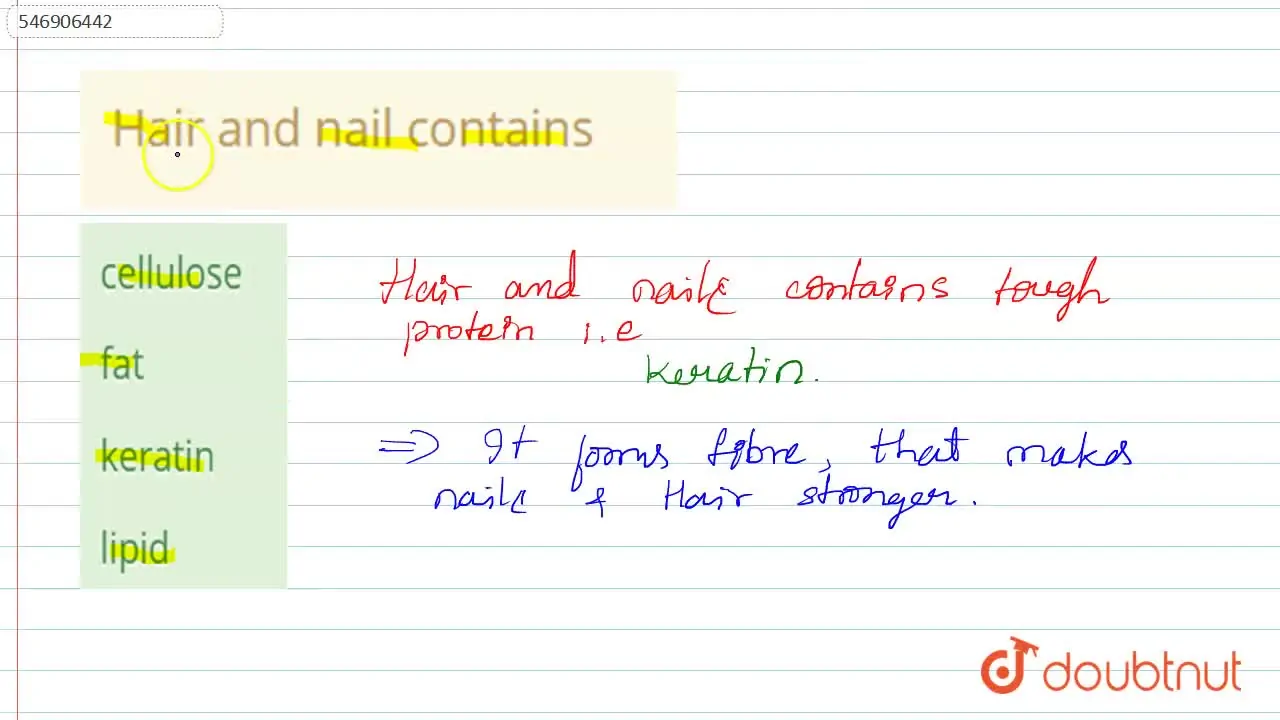 546906442
Hair and nail contains
cellulose
fat
keratin
lipid
Hair and nails contains tough
protein i.e
keratin.
⇒ It forms fibre, that makes
nails & Hair stronger.
doubtnut